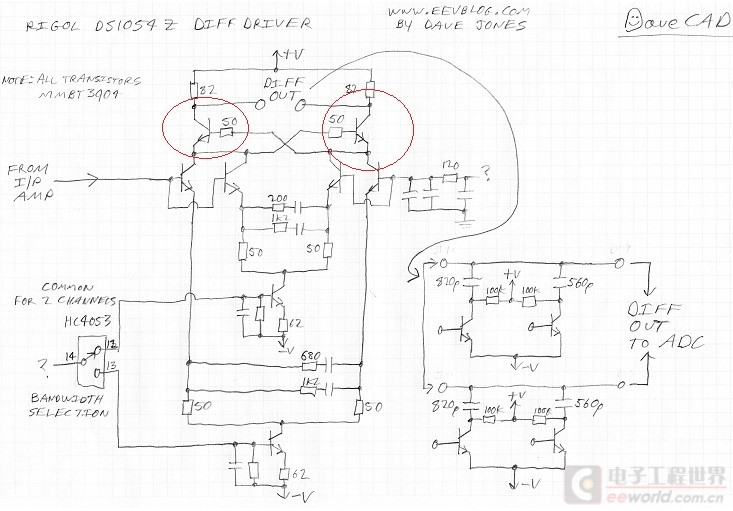 RIGOL DS1054Z DIFF DRIVER
WWW.EEVBLOG.COM
BY DAVE JONES
DaveCAD
NOTE: ALL TRANSISTORS
MMBT3904
+V
82
DIFF
OUT
82
50
50
FROM
I/P
AMP
120
?
200
1K2
50
50
COMMON
FOR 2 CHANNELS
HC4053
12
14
13
?
BANDWIDTH
SELECTION
62
-V
680
1K2
50
50
62
-V
820p
+V
560p
100K
100K
-V
DIFF
OUT
TO ADC
820p
+V
560p
100K
100K
-V
电子工程世界
eeworld.com.cn